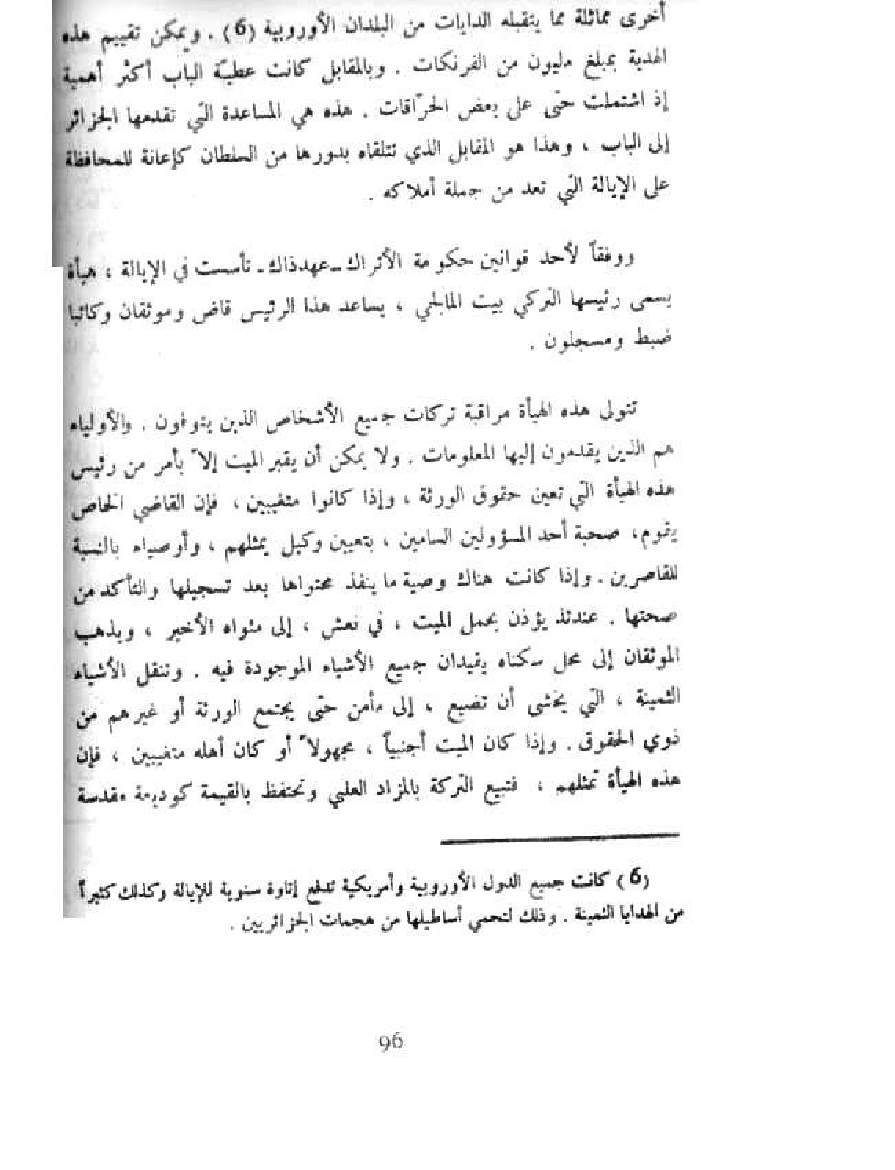 أخرى مماثلة مما يتقبله الدايات من البلدان الأوروبية (6) . ويمكن تقييم هذه
الهدية بمبلغ مليون من الفرنكات . وبالمقابل كانت عطية الباب أكثر أهمية
إذ اشتملت حتى على بعض الحرّاقات . هذه هي المساعدة التي تقدمها الجزائر
إلى الباب ، وهذا هو المقابل الذي تتلقاه بدورها من السلطان كإعانة للمحافظة
على الإيالة التي تعد من جملة أملاكه .
ووفقاً لأحد قوانين حكومة الأتراك ـ عهدذاك ـ تأسست في الإيالة ، هيأة
يسمى رئيسها التركي بيت المالجي ، يساعد هذا الرئيس قاض وموثقان وكاتبا
ضبط ومسجلون .
تتولى هذه الهيأة مراقبة تركات جميع الأشخاص الذين يتوفون . والأولياء
هم الذين يقدمون إليها المعلومات . ولا يمكن أن يقبر الميت إلاّ بأمر من رئيس
هذه الهيأة التي تعين حقوق الورثة ، وإذا كانوا متغيبين ، فإن القاضي الخاص
يقوم ، صحبة أحد المسؤولين السامين ، بتعيين وكيل يمثلهم ، وأوصياء بالنسبة
للقاصرين . وإذا كانت هناك وصية ما ينفذ محتواها بعد تسجيلها والتأكد من
صحتها . عندئذ يؤذن بحمل الميت ، في نعش ، إلى مثواه الأخير ، ويذهب
الموثقان إلى محل سكناه يقيدان جميع الأشياء الموجودة فيه . وتنقل الأشياء
الثمينة ، التي يخشى أن تضيع ، إلى مأمن حتى يجتمع الورثة أو غيرهم من
ذوي الحقوق . وإذا كان الميت أجنبياً ، مجهولاً أو كان أهله متغيبين ، فإن
هذه الهيأة تمثلهم ، فتبيع التركة بالمزاد العلني وتحتفظ بالقيمة كوديعة مقدسة
(6) كانت جميع الدول الأوروبية وأمريكية تدفع إتاوة سنوية للإيالة وكذلك كثيراً
من الهدايا الثمينة . وذلك لتحمي أساطيلها من هجمات الجزائريين .
96